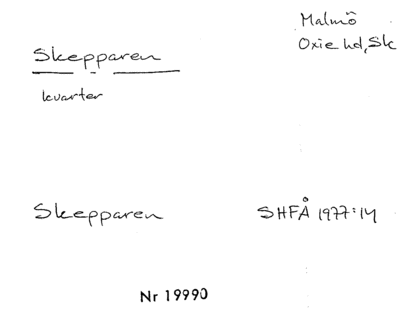 Malmö
Skepparen
Oxie hd, Sk
kvarter
Skepparen
SHFÅ 1977:14
Nr 19990